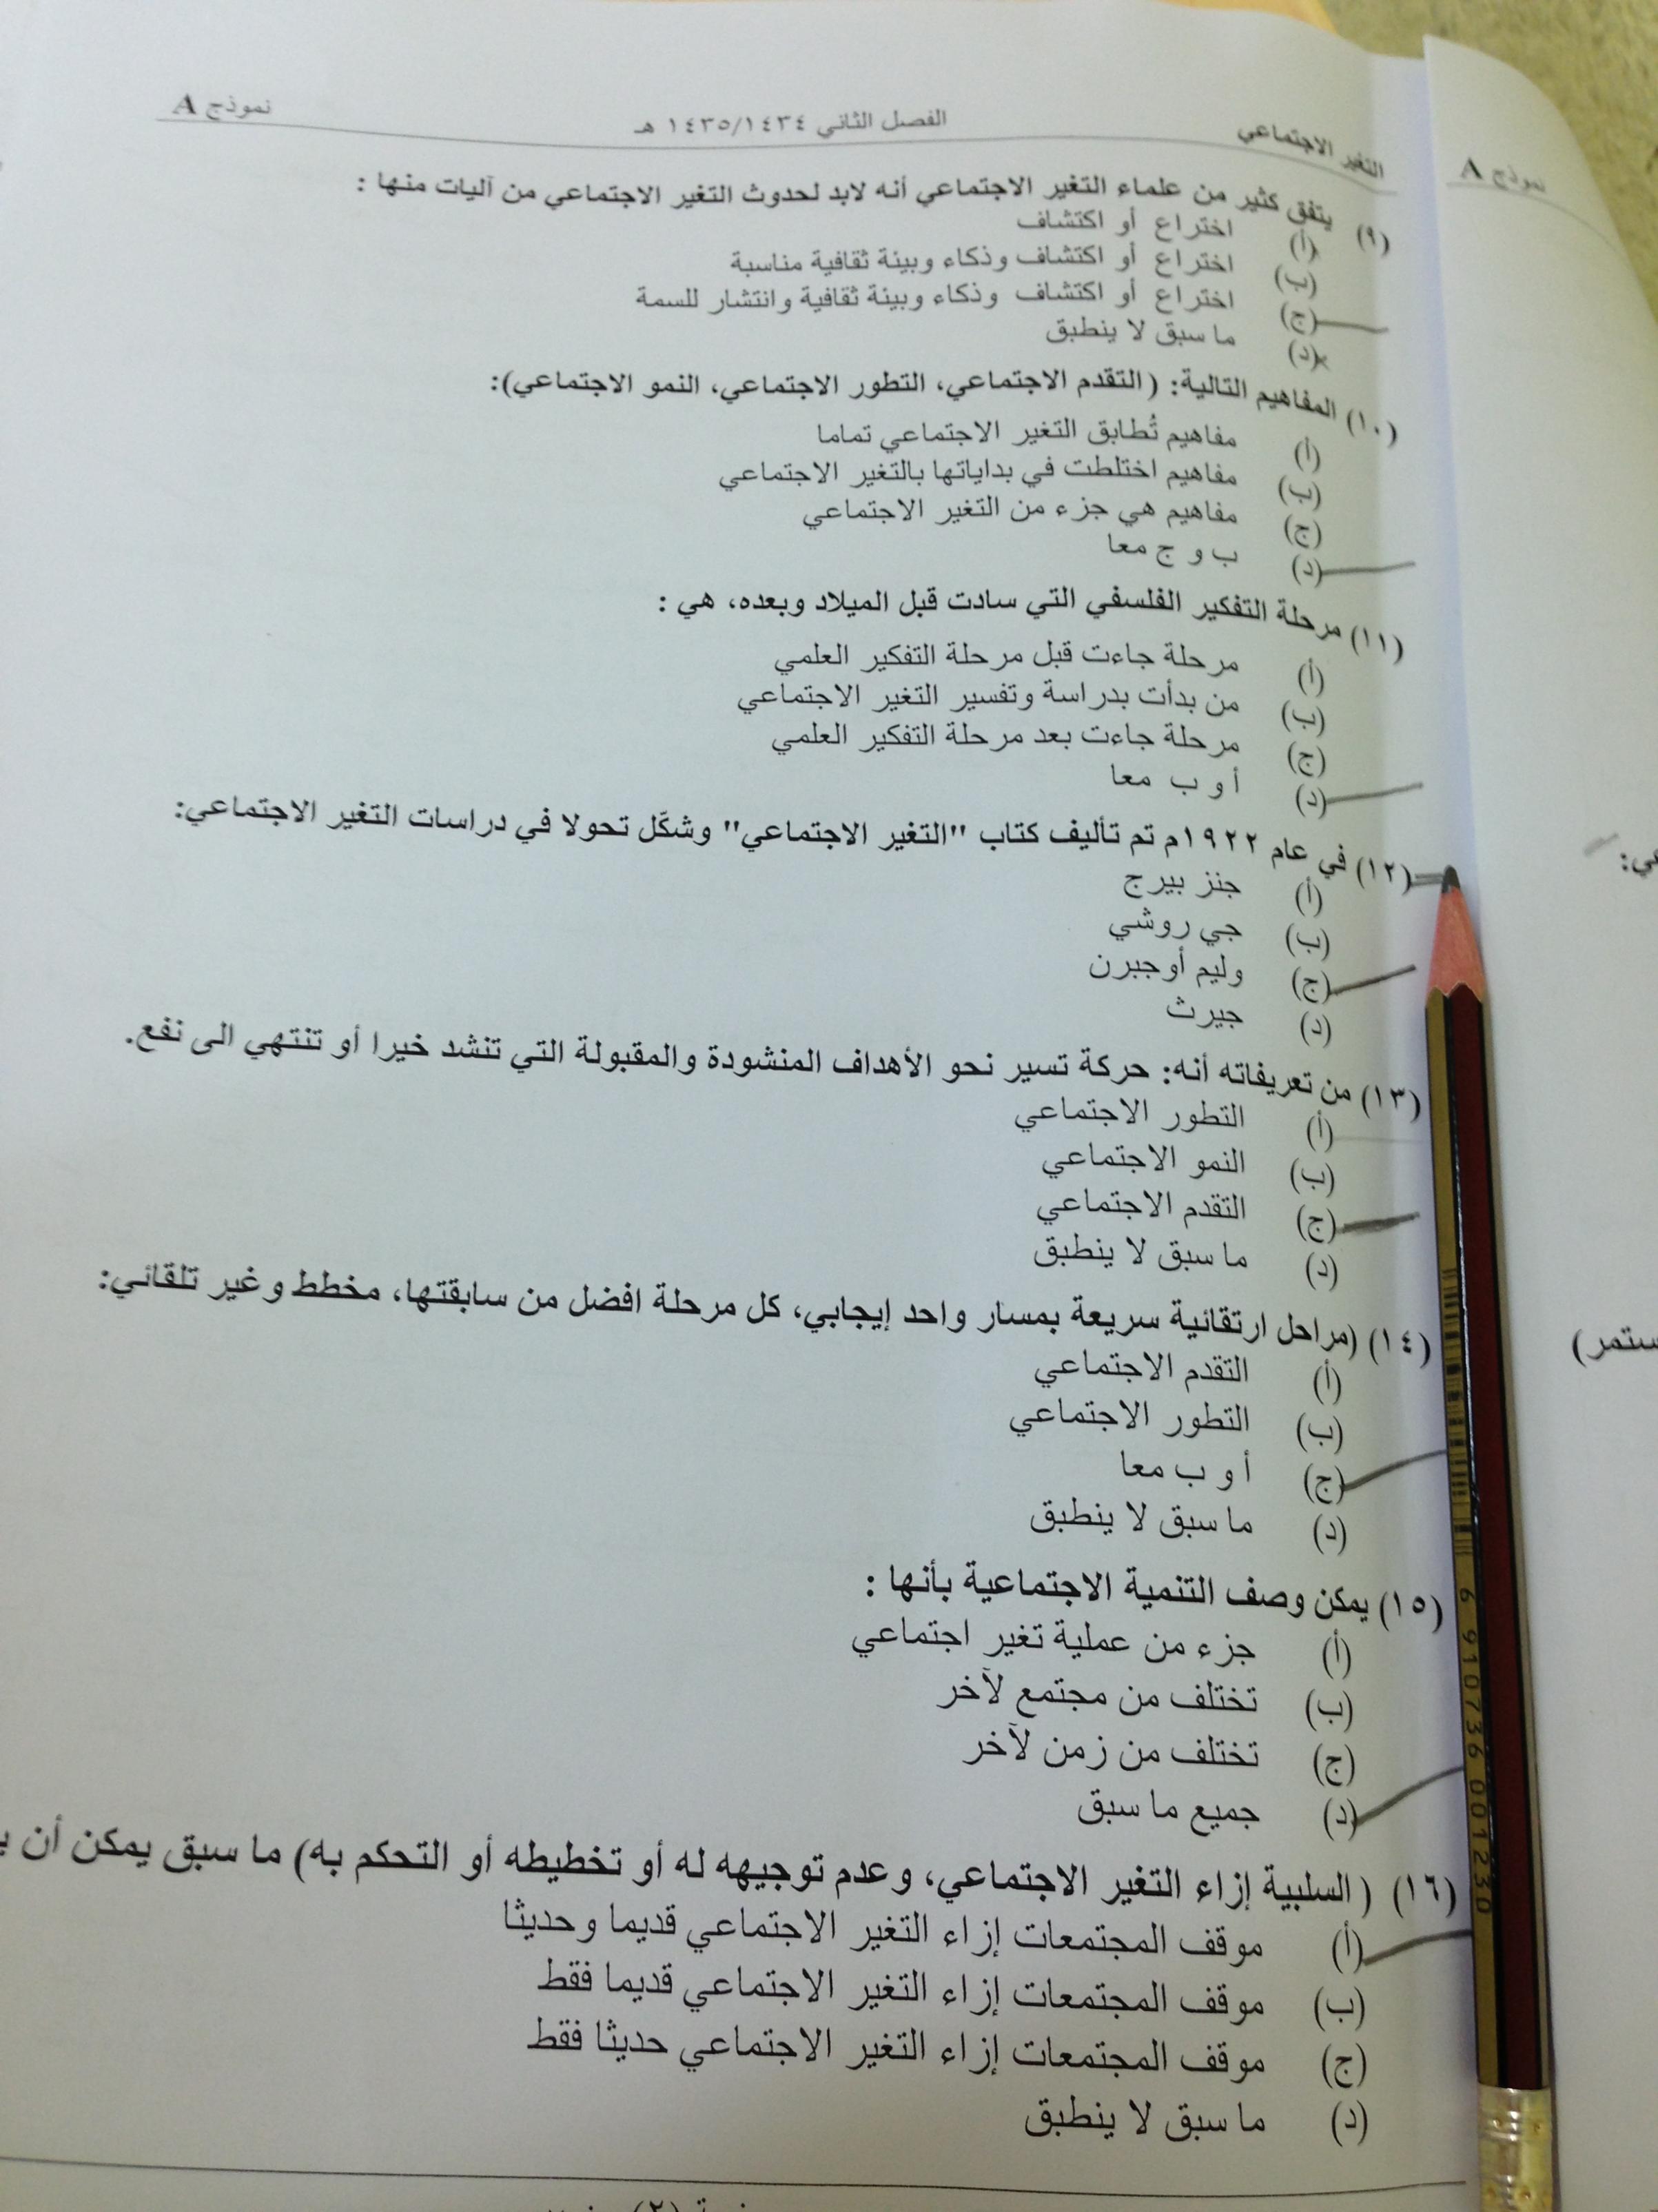 التغير الاجتماعي الفصل الثاني ١٤٣٥/١٤٣٤ هـ نموذج A
نموذج A
(٩) يتفق كثير من علماء التغير الاجتماعي أنه لابد لحدوث التغير الاجتماعي من آليات منها :
(أ) اختراع أو اكتشاف
(ب) اختراع أو اكتشاف وذكاء وبيئة ثقافية مناسبة
(ج) اختراع أو اكتشاف وذكاء وبيئة ثقافية وانتشار للسمة
(د) ما سبق لا ينطبق
(١٠) المفاهيم التالية: (التقدم الاجتماعي، التطور الاجتماعي، النمو الاجتماعي):
(أ) مفاهيم تُطابق التغير الاجتماعي تماما
(ب) مفاهيم اختلطت في بداياتها بالتغير الاجتماعي
(ج) مفاهيم هي جزء من التغير الاجتماعي
(د) ب و ج معا
(١١) مرحلة التفكير الفلسفي التي سادت قبل الميلاد وبعده، هي :
(أ) مرحلة جاءت قبل مرحلة التفكير العلمي
(ب) من بدأت بدراسة وتفسير التغير الاجتماعي
(ج) مرحلة جاءت بعد مرحلة التفكير العلمي
(د) أ و ب معا
(١٢) في عام ١٩٢٢م تم تأليف كتاب "التغير الاجتماعي" وشكّل تحولا في دراسات التغير الاجتماعي:
(أ) جنز بيرج
(ب) جي روشي
(ج) وليم أوجبرن
(د) جيرث
(١٣) من تعريفاته أنه: حركة تسير نحو الأهداف المنشودة والمقبولة التي تنشد خيرا أو تنتهي الى نفع.
(أ) التطور الاجتماعي
(ب) النمو الاجتماعي
(ج) التقدم الاجتماعي
(د) ما سبق لا ينطبق
(١٤) (مراحل ارتقائية سريعة بمسار واحد إيجابي، كل مرحلة افضل من سابقتها، مخطط وغير تلقائي:
(أ) التقدم الاجتماعي
(ب) التطور الاجتماعي
(ج) أ و ب معا
(د) ما سبق لا ينطبق
(١٥) يمكن وصف التنمية الاجتماعية بأنها :
(أ) جزء من عملية تغير اجتماعي
(ب) تختلف من مجتمع لآخر
(ج) تختلف من زمن لآخر
(د) جميع ما سبق
(١٦) (السلبية إزاء التغير الاجتماعي، وعدم توجيهه له أو تخطيطه أو التحكم به) ما سبق يمكن أن
(أ) موقف المجتمعات إزاء التغير الاجتماعي قديما وحديثا
(ب) موقف المجتمعات إزاء التغير الاجتماعي قديما فقط
(ج) موقف المجتمعات إزاء التغير الاجتماعي حديثا فقط
(د) ما سبق لا ينطبق
6 910736 001230